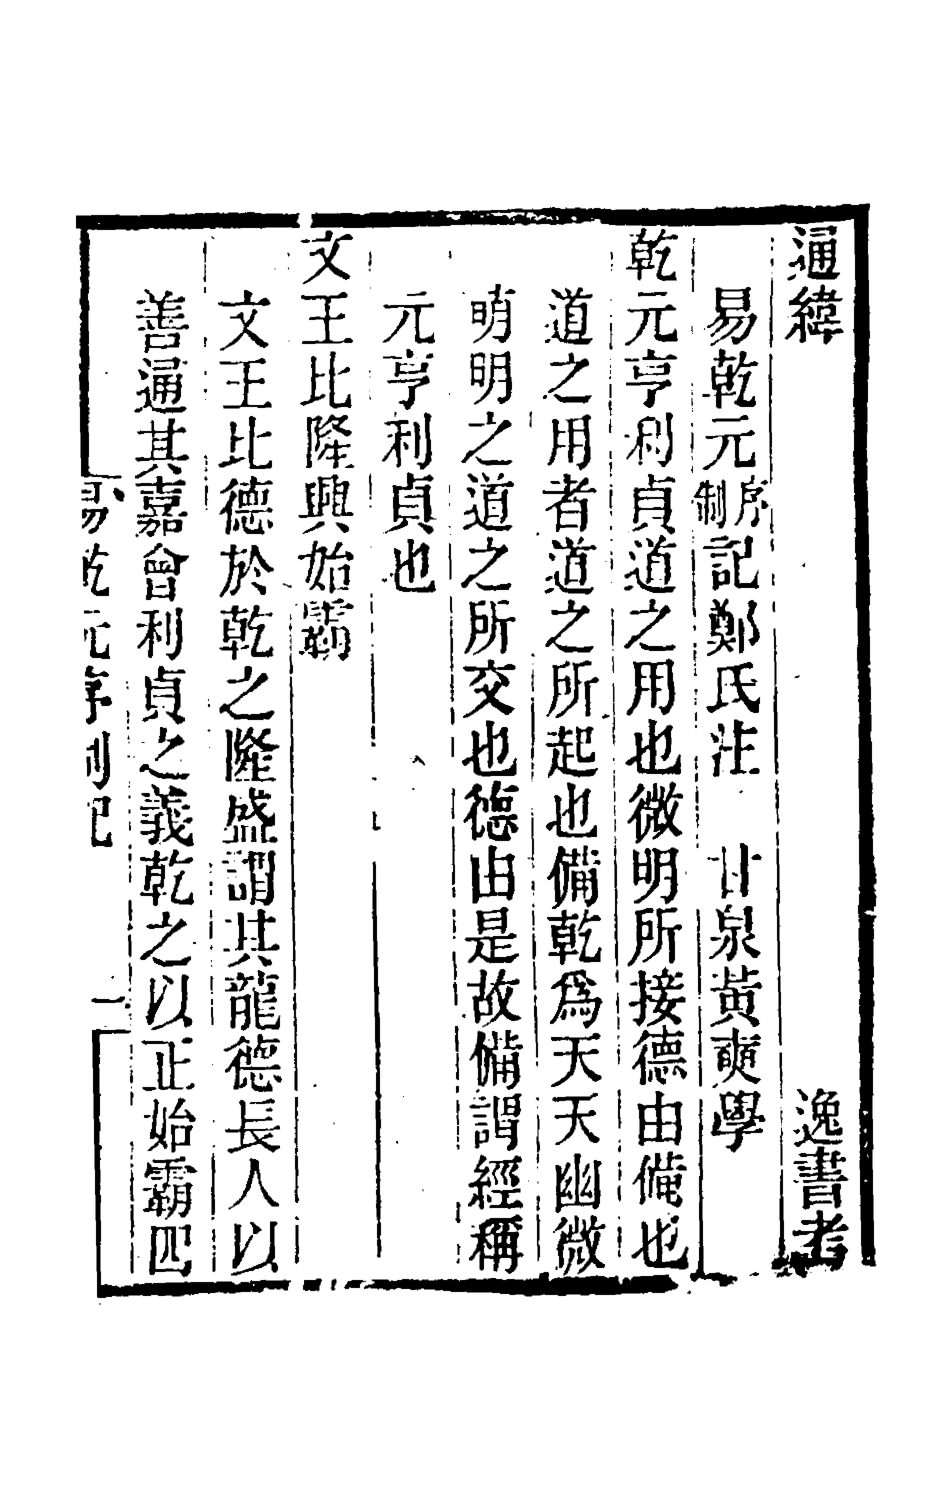 通緯　逸書考
易乾元序制記鄭氏注　甘泉黃奭學
乾元亨利貞道之用也微明所接德由備也
道之用者道之所起也備乾爲天天幽微
萌明之道之所交也德由是故備謂經稱
元亨利貞也
文王比隆興始霸
文王比德於乾之隆盛謂其龍德長人以
善通其嘉會利貞之義乾之以正始霸四
易乾元序制記　一